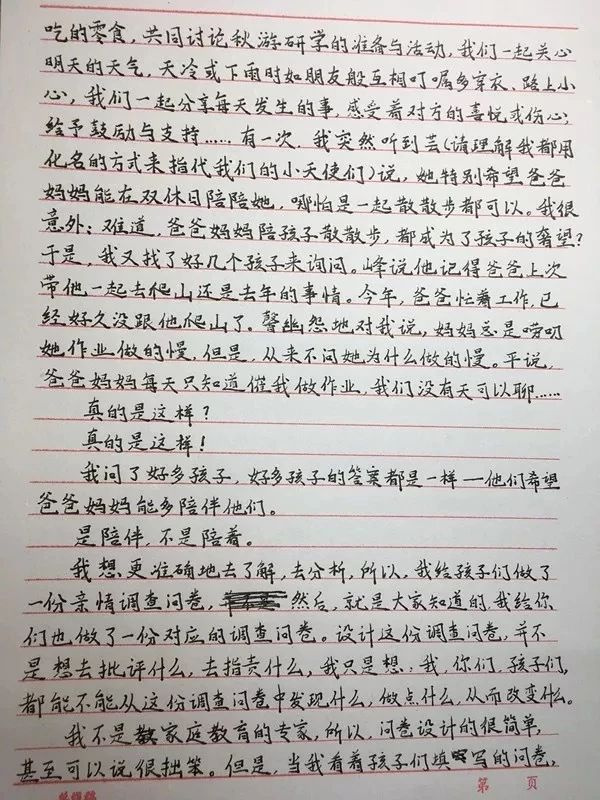 吃的零食，共同讨论秋游研学的准备与活动，我们一起关心
明天的天气，天冷或下雨时如朋友般互相叮嘱多穿衣、路上小
心，我们一起分享每天发生的事，感受着对方的喜悦或伤心，
给予鼓励与支持……有一次，我突然听到芸（请理解我都用
化名的方式来指代我们的小天使们）说，她特别希望爸爸
妈妈能在双休日陪陪她，哪怕是一起散散步都可以。我很
意外：难道，爸爸妈妈陪孩子散散步，都成为了孩子的奢望？
于是，我又找了好几个孩子来询问。峰说他记得爸爸上次
带他一起去爬山还是去年的事情。今年，爸爸忙着工作，已
经好久没跟他爬山了。馨幽怨地对我说，妈妈总是唠叨
她作业做的慢，但是，从来不问她为什么做的慢。平说，
爸爸妈妈每天只知道催我做作业，我们没有天可以聊……
真的是这样？
真的是这样！
我问了好多孩子，好多孩子的答案都是一样—他们希望
爸爸妈妈能多陪伴他们。
是陪伴，不是陪着。
我想更准确地去了解，去分析，所以，我给孩子们做了
一份亲情调查问卷，然后，就是大家知道的，我给你
们也做了一份对应的调查问卷。设计这份调查问卷，并不
是想去批评什么，去指责什么，我只是想：我，你们，孩子们，
都能不能从这份调查问卷中发现什么，做点什么，从而改变什么。
我不是家庭教育的专家，所以，问卷设计的很简单，
甚至可以说很拙笨。但是，当我看着孩子们填写的问卷，
第 页